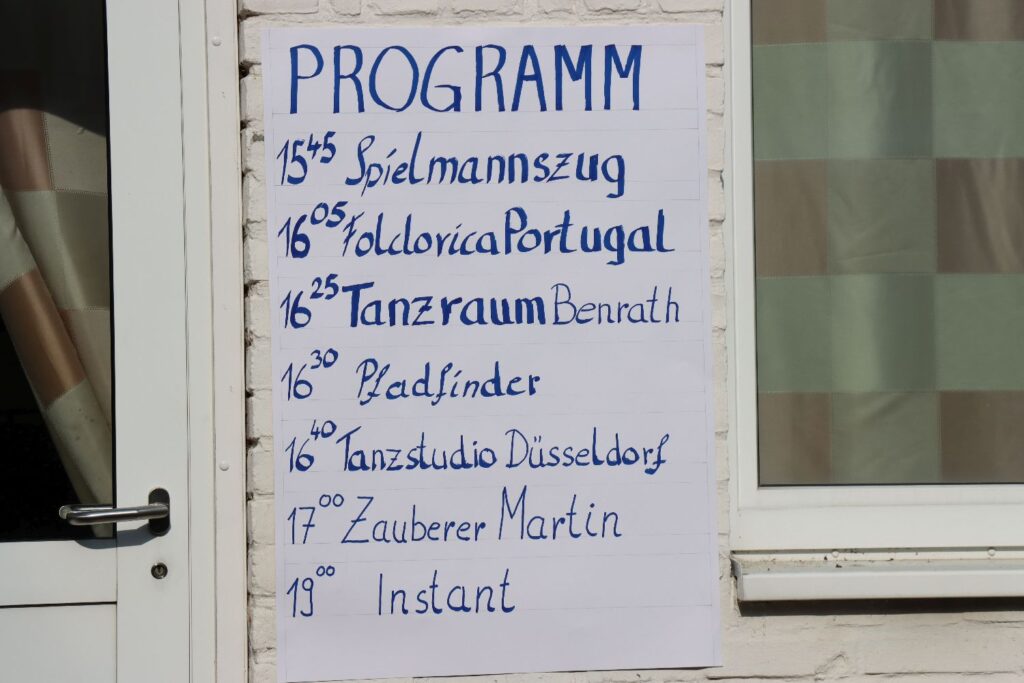 PROGRAMM
15⁴⁵ Spielmannszug
16⁰⁵ Folclorica Portugal
16²⁵ Tanzraum Benrath
16³⁰ Pfadfinder
16⁴⁰ Tanzstudio Düsseldorf
17⁰⁰ Zauberer Martin
19⁰⁰ Instant